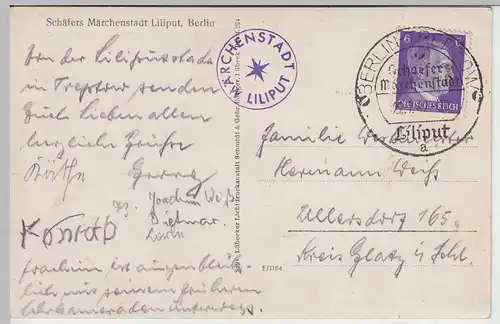 Schäfers Märchenstadt Liliput, Berlin
Von der Liliputstadt
in Treptow senden
Euch Lieben allen
herzliche Grüße
Käthe Georg
Joachim Weiß
Dietmar
Joachim ist augenblick-
lich mit seinem früheren
unterwegs.
MÄRCHENSTADT
LILIPUT
BERLIN
Schaefers
Märchenstadt
Liliput
a
6 6
DEUTSCHES REICH
Lichtdruckanstalt Schmidt &
E/1184
Familie
Hermann
Ullersdorf 165
Kreis Glatz i/ Schl.